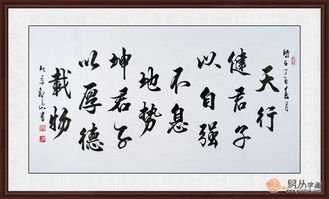 丁酉春月
天行
健君子
以自强
不息
地势
坤君子
以厚德
載物
易从字画